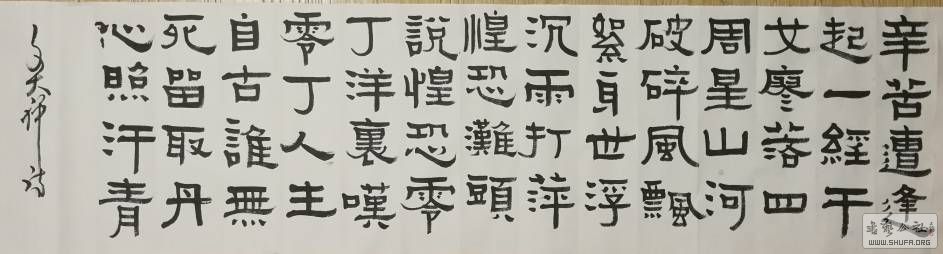 辛苦遭逢
起一經干
戈寥落四
周星山河
破碎風飄
絮身世浮
沉雨打萍
惶恐灘頭
說惶恐零
丁洋裏嘆
零丁人生
自古誰無
死留取丹
心照汗青
文天祥詩
WWW.SHUFA.ORG